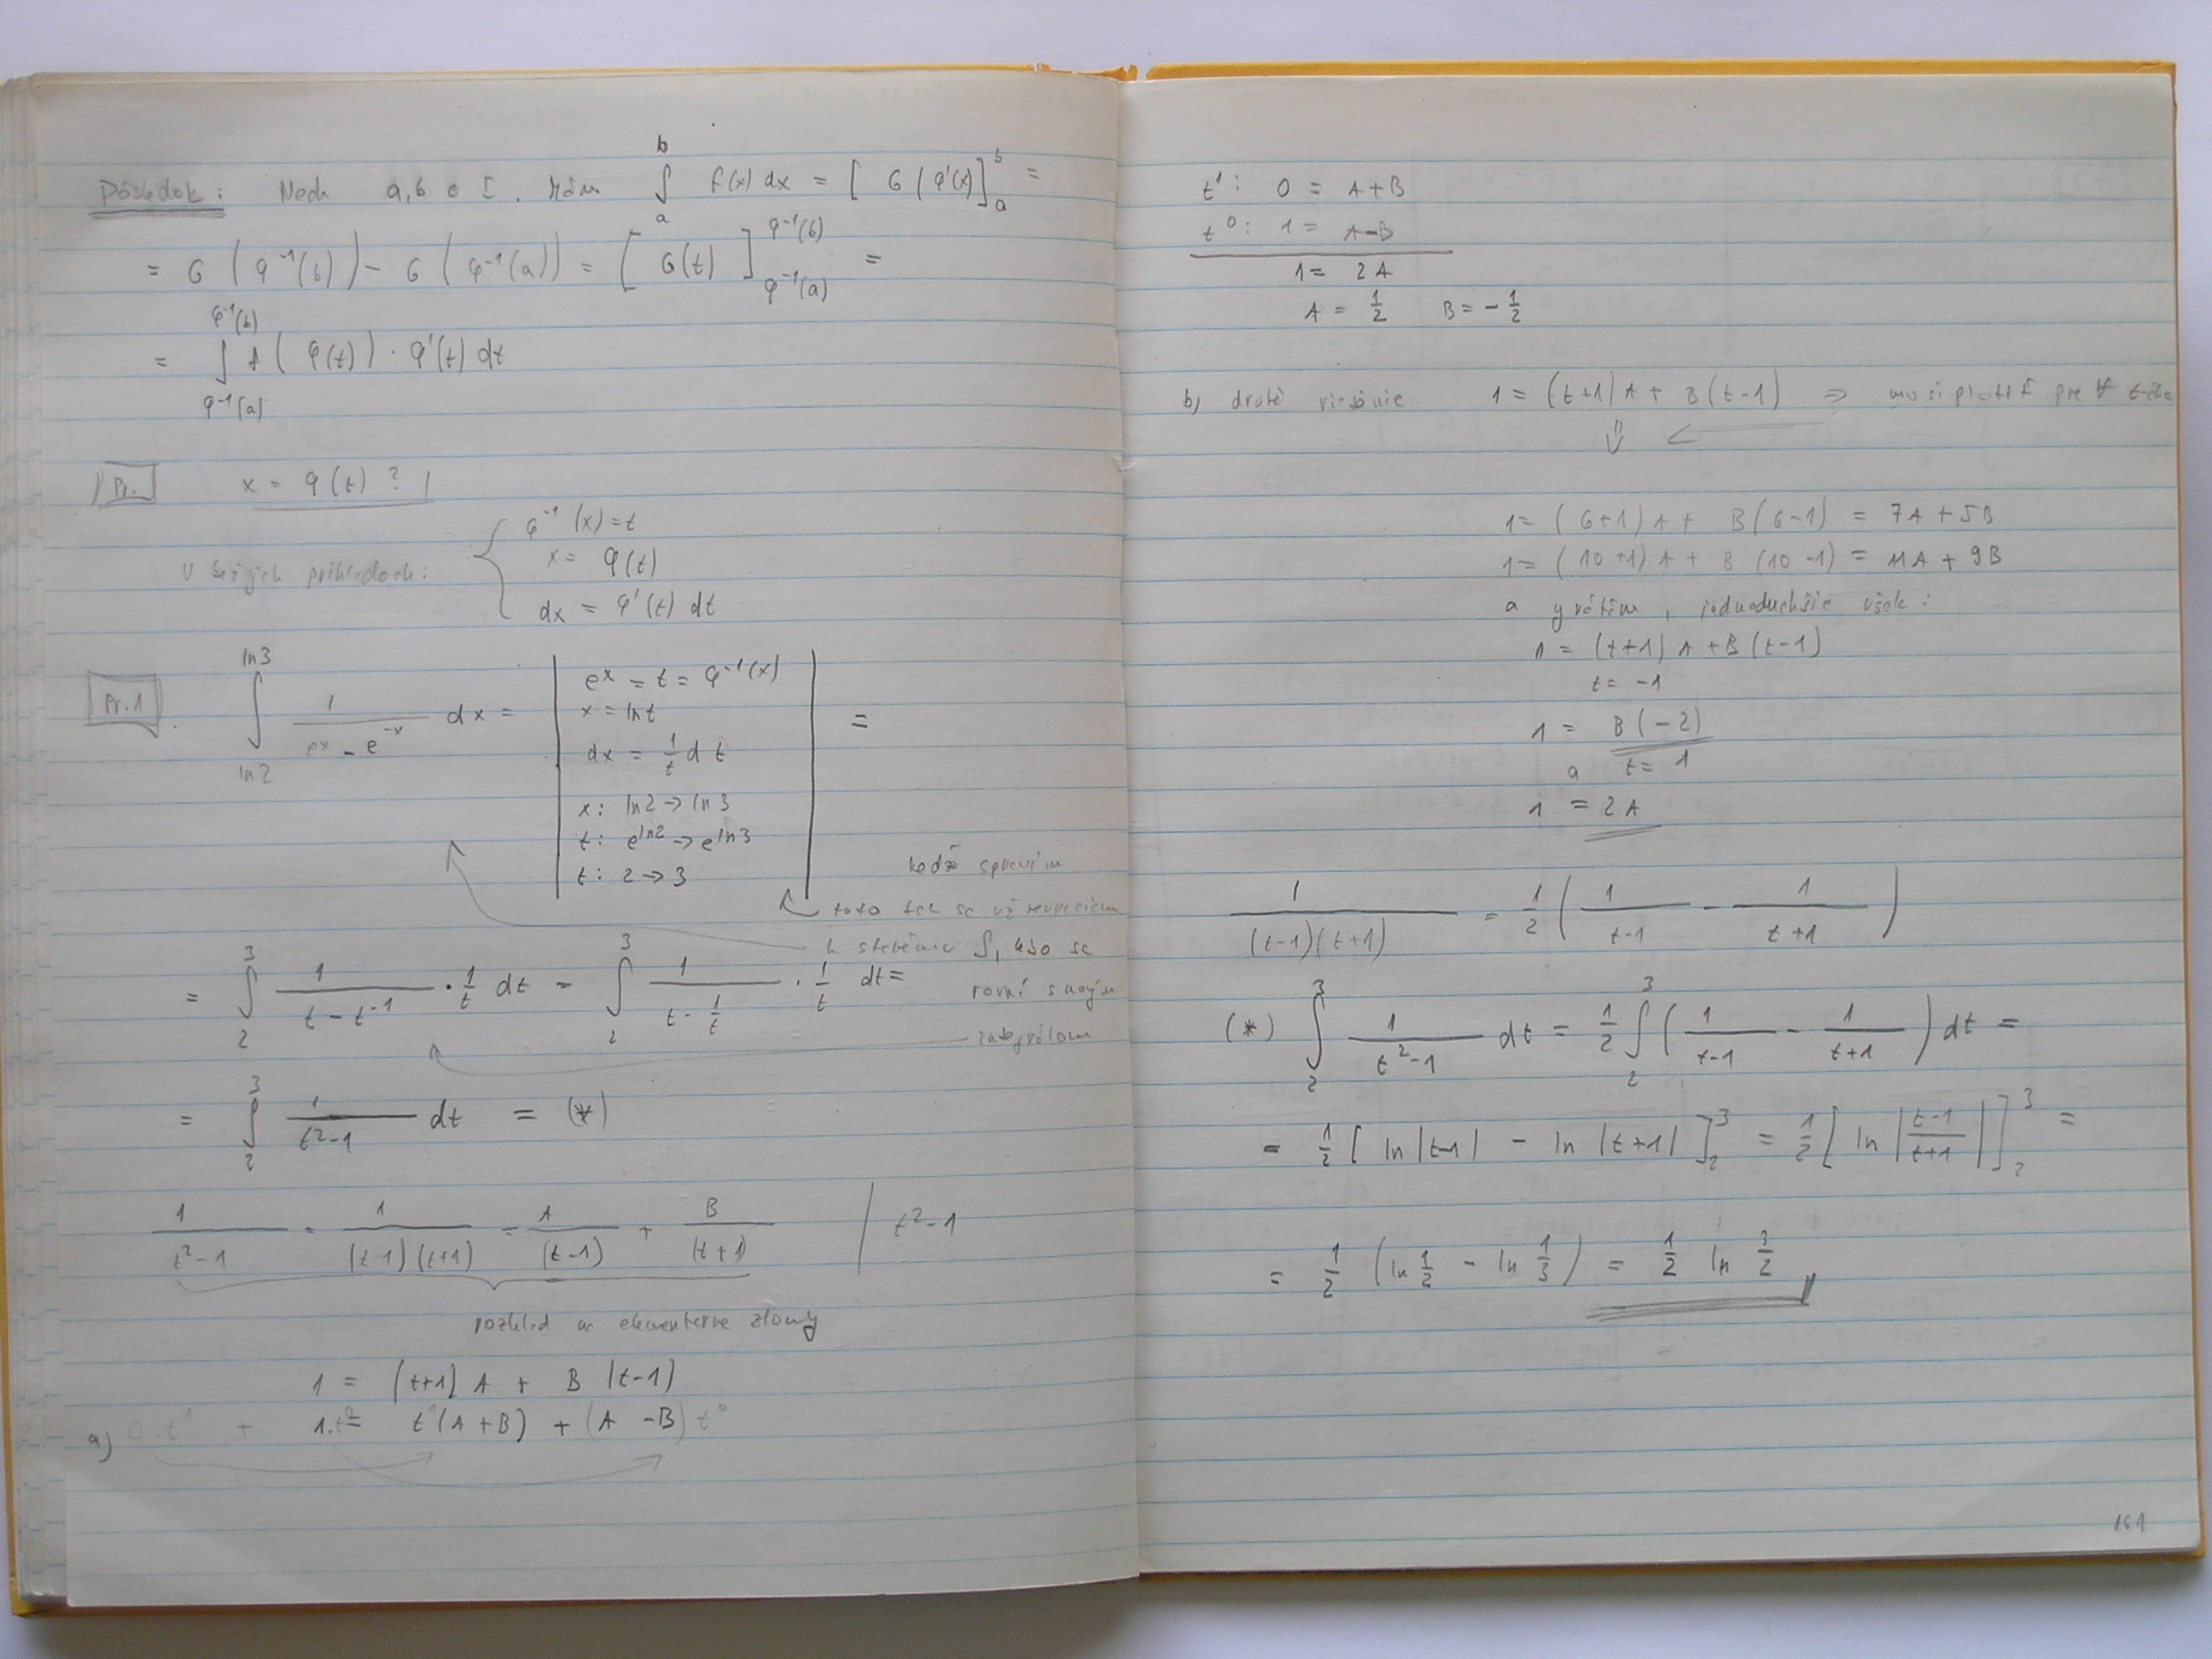 Dôsledok: Nech a,b ∈ I. Mám ∫_a^b f(x) dx = [ G ( φ'(x) ]_a^b =
= G ( φ⁻¹(b) ) - G ( φ⁻¹(a) ) = [ G(t) ]_{φ⁻¹(a)}^{φ⁻¹(b)} =
= ∫_{φ⁻¹(a)}^{φ⁻¹(b)} f ( φ(t) ) · φ'(t) dt
Pr. x = φ(t) ?
φ⁻¹(x) = t
V príkladoch: x = φ(t)
dx = φ'(t) dt
Pr.1 ∫_{ln2}^{ln3} 1/(e^x - e^{-x}) dx = | e^x = t = φ⁻¹(x)
x = ln t
dx = 1/t dt
x: ln2 → ln3
t: e^{ln2} → e^{ln3}
t: 2 → 3 | =
keďže spravím
toto tak sa už nevraciam
k starému ∫, lebo sa
rovná s novým
integrálom
= ∫_2^3 1/(t - t⁻¹) · 1/t dt = ∫_2^3 1/(t - 1/t) · 1/t dt =
= ∫_2^3 1/(t²-1) dt = (*)
1/(t²-1) = 1/((t-1)(t+1)) = A/(t-1) + B/(t+1) | t²-1
rozklad na elementárne zlomky
1 = (t+1) A + B (t-1)
a) 0.t¹ + 1.t⁰ = t¹(A + B) + (A - B) t⁰
t¹: 0 = A+B
t⁰: 1 = A-B
1 = 2A
A = 1/2 B = -1/2
b) druhé riešenie 1 = (t+1) A + B (t-1) ⇒ musí platiť pre ∀
⇓
1 = (6+1) A + B (6-1) = 7A + 5B
1 = (10+1) A + B (10-1) = 11A + 9B
a vyrátim, jednoduchšie však:
1 = (t+1) A + B (t-1)
t = -1
1 = B (-2)
a t = 1
1 = 2A
1/((t-1)(t+1)) = 1/2 ( 1/(t-1) - 1/(t+1) )
(*) ∫_2^3 1/(t²-1) dt = 1/2 ∫_2^3 ( 1/(t-1) - 1/(t+1) ) dt =
= 1/2 [ ln |t-1| - ln |t+1| ]_2^3 = 1/2 [ ln | (t-1)/(t+1) | ]_2^3 =
= 1/2 ( ln 1/2 - ln 1/3 ) = 1/2 ln 3/2
161